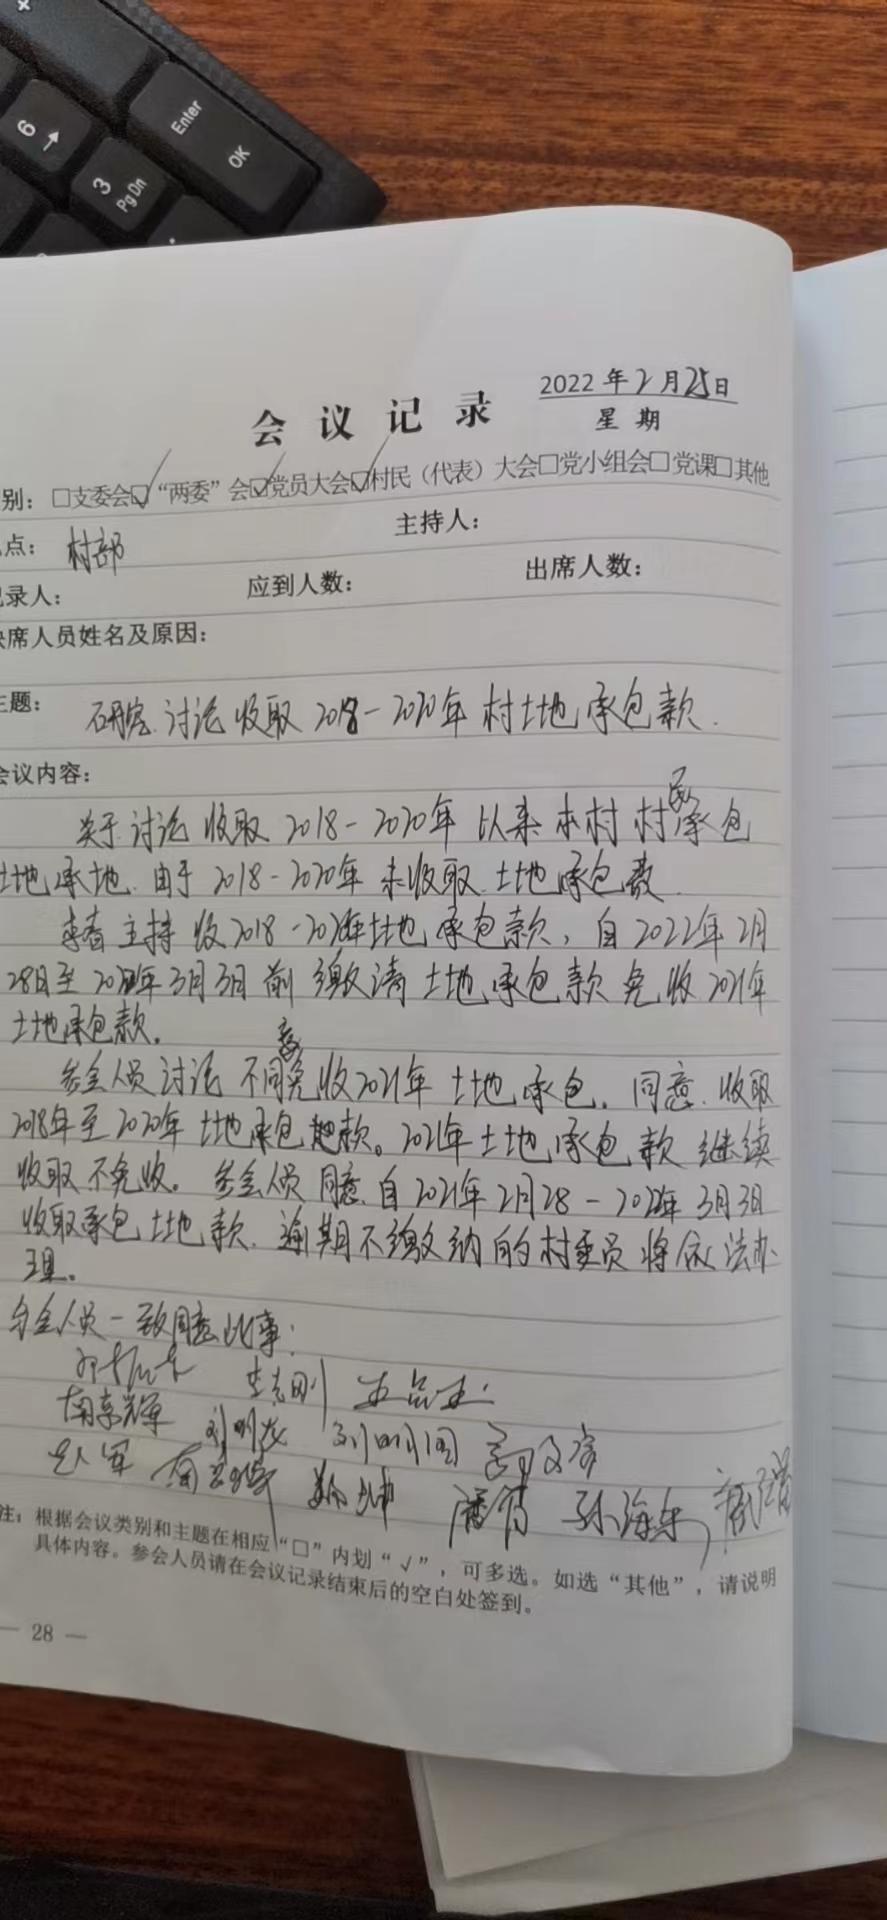 6
3
PgDn
Enter
OK
2022年2月25日
会议记录
星期
别：□支委会☑“两委”会☑党员大会☑村民（代表）大会□党小组会□党课□其他
点：村部 主持人：
录人： 应到人数： 出席人数：
席人员姓名及原因：
题：研究讨论收取2018-2020年村土地承包款.
会议内容：
关于讨论收取2018-2020年以来本村村民承包
土地承地.由于2018-2020年未收取土地承包款
主持收2018-2020年土地承包款，自2022年2月
28日至2022年3月3日前缴清土地承包款免收2021年
土地承包款。
参会人员讨论不同意免收2021年土地承包。同意收取
2018年至2020年土地承包地款。2021年土地承包款继续
收取不免收。参会人员同意自2021年2月28-2022年3月3日
收取承包土地款.逾期不缴纳的村委员将依法办
理。
与会人员一致同意此事：
李志刚
南李辉 刘明龙 刘明国
赵军 孙海东
注：根据会议类别和主题在相应“□”内划“√”，可多选。如选“其他”，请说明
具体内容。参会人员请在会议记录结束后的空白处签到。
— 28 —